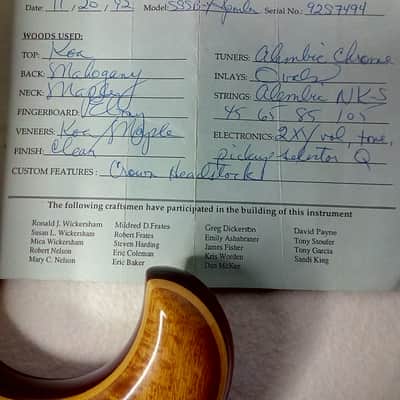 Date: 11, 20, 92 Model: SSSB-4 Serial No.: 92S7494
WOODS USED:
TOP: Koa
BACK: Mahogany
NECK: Maple
FINGERBOARD: Ebony
VENEERS: Koa / Maple
FINISH: Clear
TUNERS: Alembic Chrome
INLAYS: Ovals
STRINGS: Alembic NKS
45 65 85 105
ELECTRONICS: 2XY vol, tone,
pickup selector Q
CUSTOM FEATURES: Crown Headstock
The following craftsmen have participated in the building of this instrument
Ronald J. Wickersham
Susan L. Wickersham
Mica Wickersham
Robert Nelson
Mary C. Nelson
Mildred D. Frates
Robert Frates
Steven Harding
Eric Coleman
Eric Baker
Greg Dickerson
Emily Ashabraner
James Fisher
Kris Worden
Dan McKee
David Payne
Tony Stoufer
Tony Garcia
Sandi King